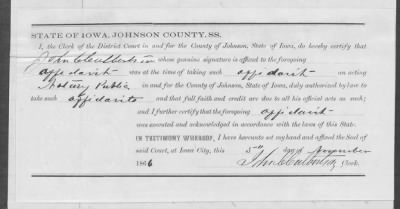 STATE OF IOWA, JOHNSON COUNTY, SS.
I, the Clerk of the District Court in and for the County of Johnson, State of Iowa, do hereby certify that
John whose genuine signature is affixed to the foregoing
affidavit was at the time of taking such affidavit an acting
Notary Public in and for the County of Johnson, State of Iowa, duly authorized by law to
take such affidavits and that full faith and credit are due to all his official acts as such;
and I further certify that the foregoing affidavit
was executed and acknowledged in accordance with the laws of this State.
IN TESTIMONY WHEREOF, I have hereunto set my hand and affixed the Seal of
said Court, at Iowa City, this 5th day of November
1866 John Clerk.